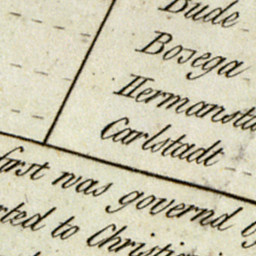 Bude
Bosega
Hermansta
Carlstadt
first was governd by
rted to Christia